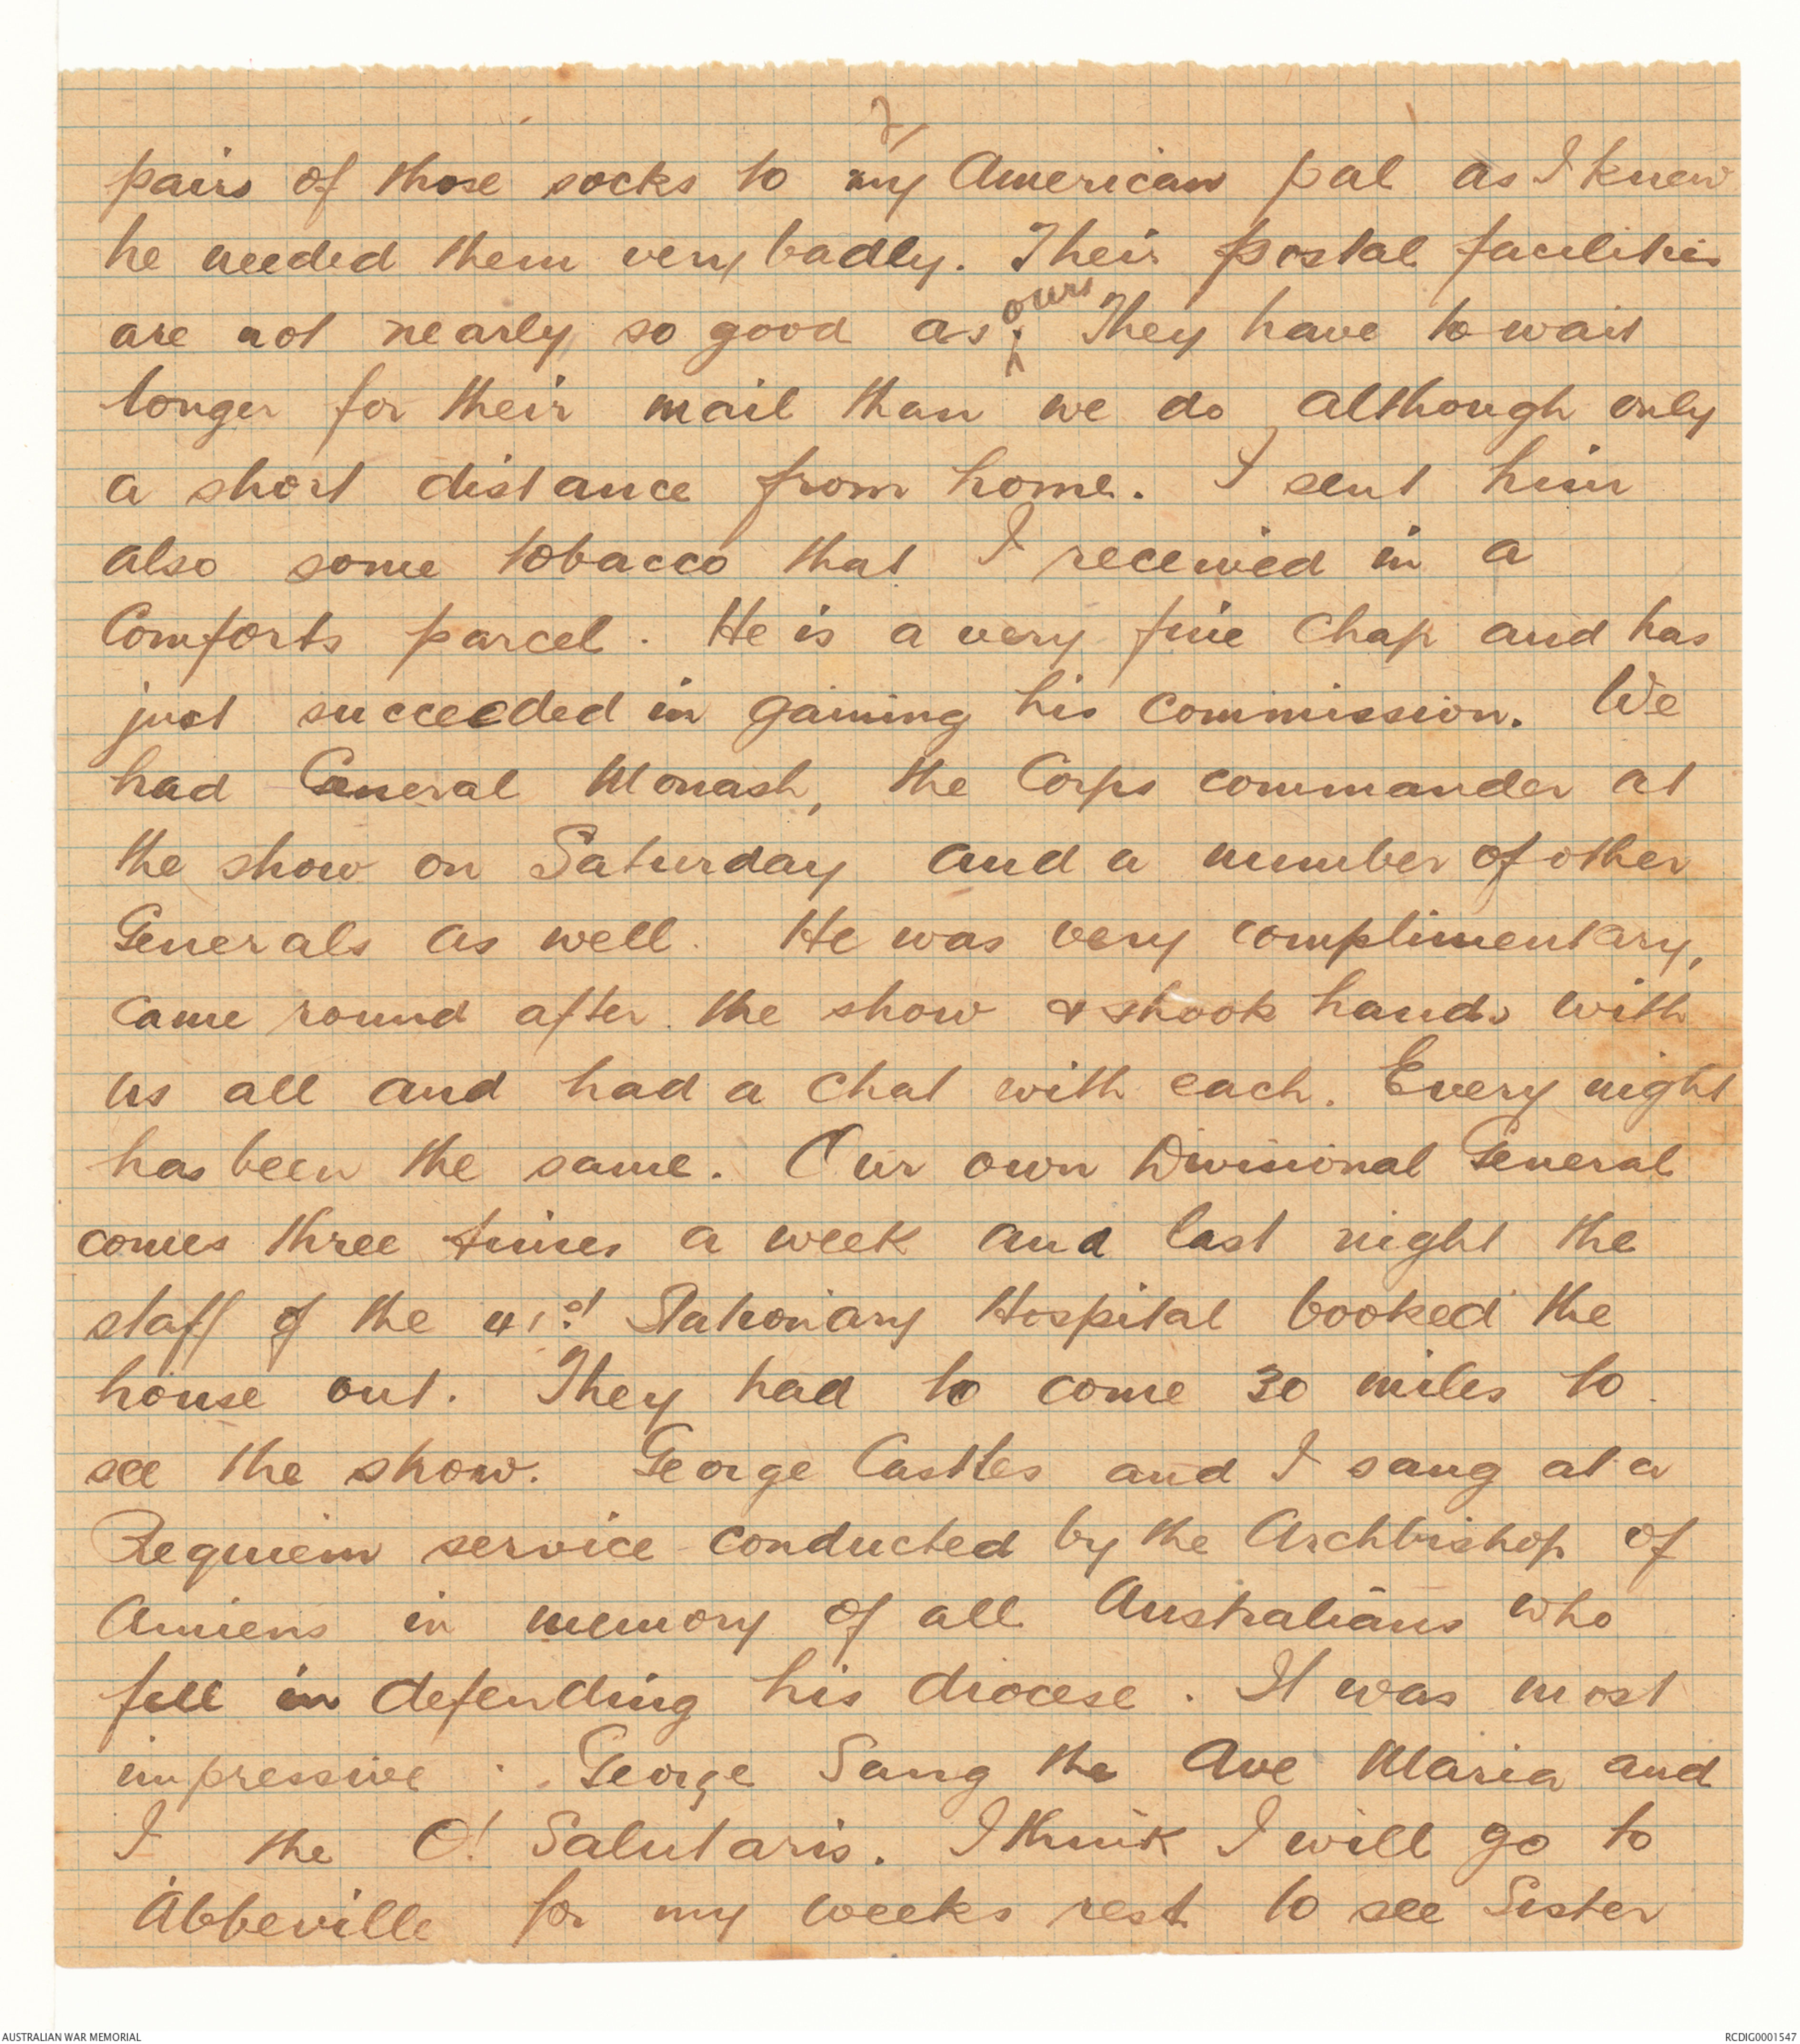 2/
pairs of those socks to my American pal as I knew
he needed them very badly. Their postal facilities
are not nearly so good as ours. They have to wait
longer for their mail than we do, although only
a short distance from home. I sent him
also some tobacco that I received in a
Comforts parcel. He is a very fine chap and has
just succeeded in gaining his commission. We
had General Monash, the Corps commander at
the show on Saturday and a number of other
Generals as well. He was very complimentary,
came round after the show & shook hands with
us all and had a chat with each. Every night
has been the same. Our own Divisional General
comes three times a week and last night the
staff of the 41st Stationary Hospital booked the
house out. They had to come 30 miles to
see the show. George Castles and I sang at a
Requiem service conducted by the Archbishop of
Amiens in memory of all Australians who
fell in defending his diocese. It was most
impressive. George Sang the Ave Maria and
I the O! Salutaris. I think I will go to
Abbeville for my weeks rest to see Sister
AUSTRALIAN WAR MEMORIAL
RCDIG0001547